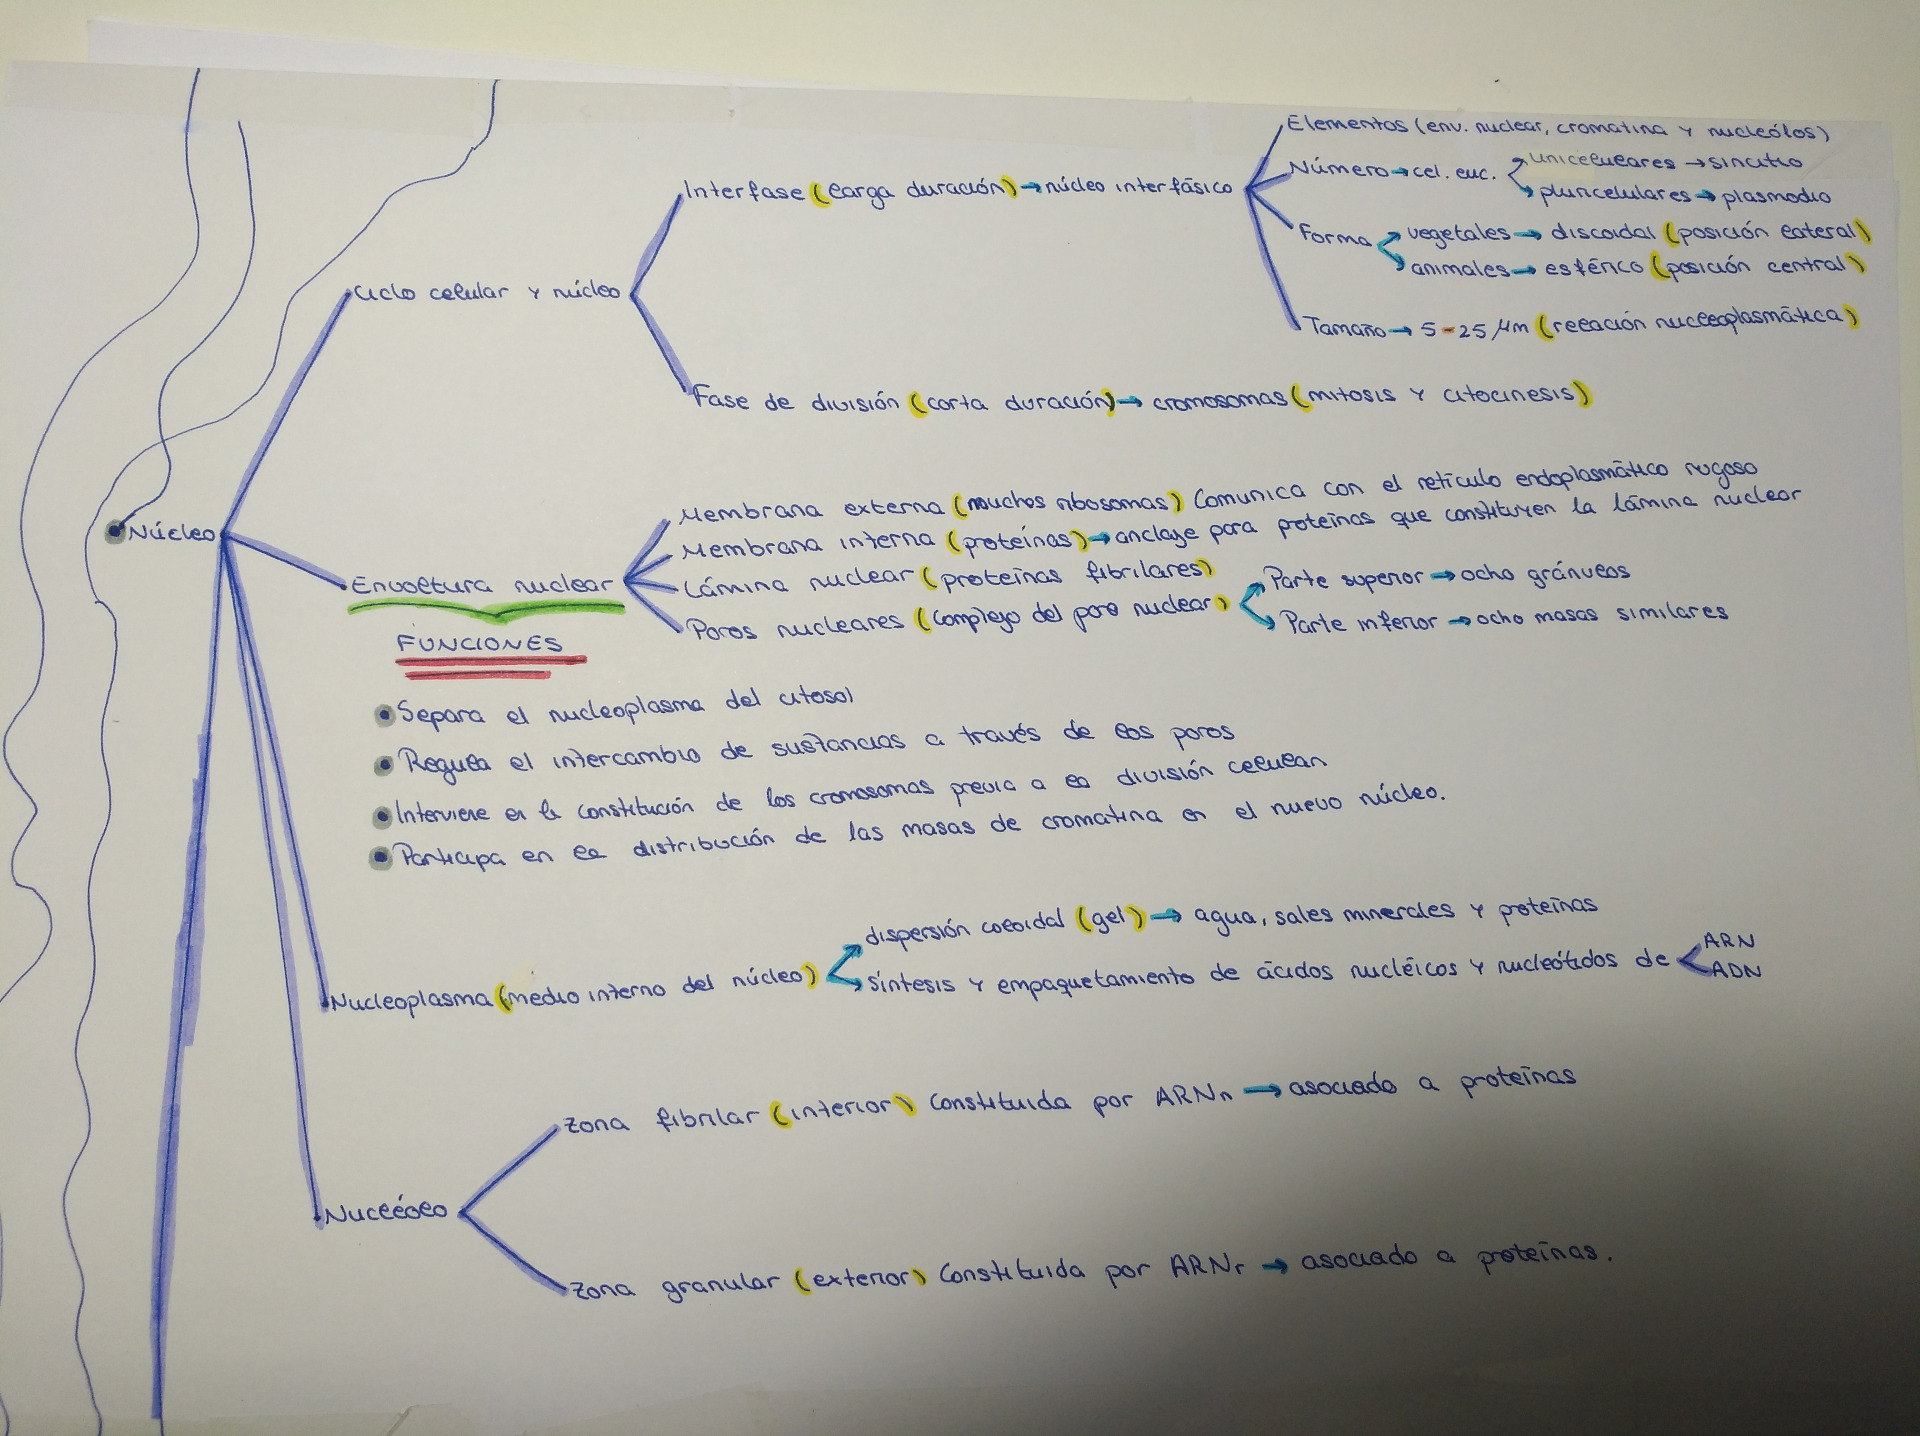 Elementos (env. nuclear, cromatina y nucleólos)
Interfase (larga duración) → núcleo interfásico
Número → cel. euc.
unicelulares → sincitio
pluricelulares → plasmodio
Forma
vegetales → discoidal (posición lateral)
animales → esférico (posición central)
Tamaño → 5-25 μm (relación nucleoplasmática)
Ciclo celular y núcleo
Fase de división (corta duración) → cromosomas (mitosis y citocinesis)
Núcleo
Envoltura nuclear
Membrana externa (muchos ribosomas) Comunica con el retículo endoplasmático rugoso
Membrana interna (proteínas) → anclaje para proteínas que constituyen la lámina nuclear
Lámina nuclear (proteínas fibrilares)
Poros nucleares (Complejo del poro nuclear)
Parte superior → ocho gránulos
Parte inferior → ocho masas similares
FUNCIONES
• Separa el nucleoplasma del citosol
• Regula el intercambio de sustancias a través de los poros
• Interviene en la constitución de los cromosomas previa a la división celular
• Participa en la distribución de las masas de cromatina en el nuevo núcleo.
Nucleoplasma (medio interno del núcleo)
dispersión coloidal (gel) → agua, sales minerales y proteínas
Síntesis y empaquetamiento de ácidos nucléicos y nucleótidos de
ARN
ADN
Nucléolo
Zona fibrilar (interior) Constituida por ARNn → asociado a proteínas
Zona granular (exterior) Constituida por ARNr → asociado a proteínas.